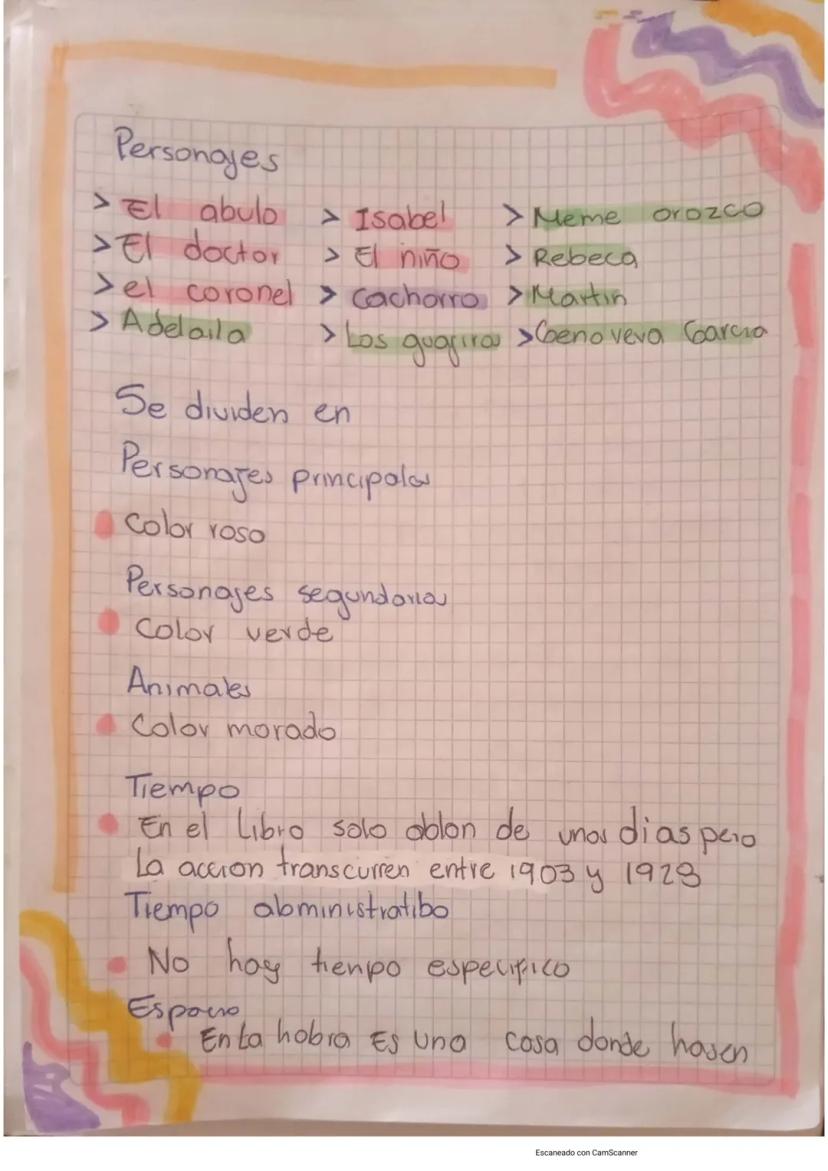 Personajes
> El abulo > Isabel > Meme orozco
> El doctor > El niño > Rebeca
> el coronel > cachorro > Martin
> Adelaila > Los guajiros > Genoveva Garcia
Se dividen en
Personajes principales
Color roso
Personajes segundarios
Color verde
Animales
Color morado
Tiempo
En el Libro solo ablan de unos dias pero
La accion transcurren entre 1903 y 1928
Tiempo abministratibo
No hay tienpo especifico
Espacio
En la hobra Es una casa donde hasen
Escaneado con CamScanner